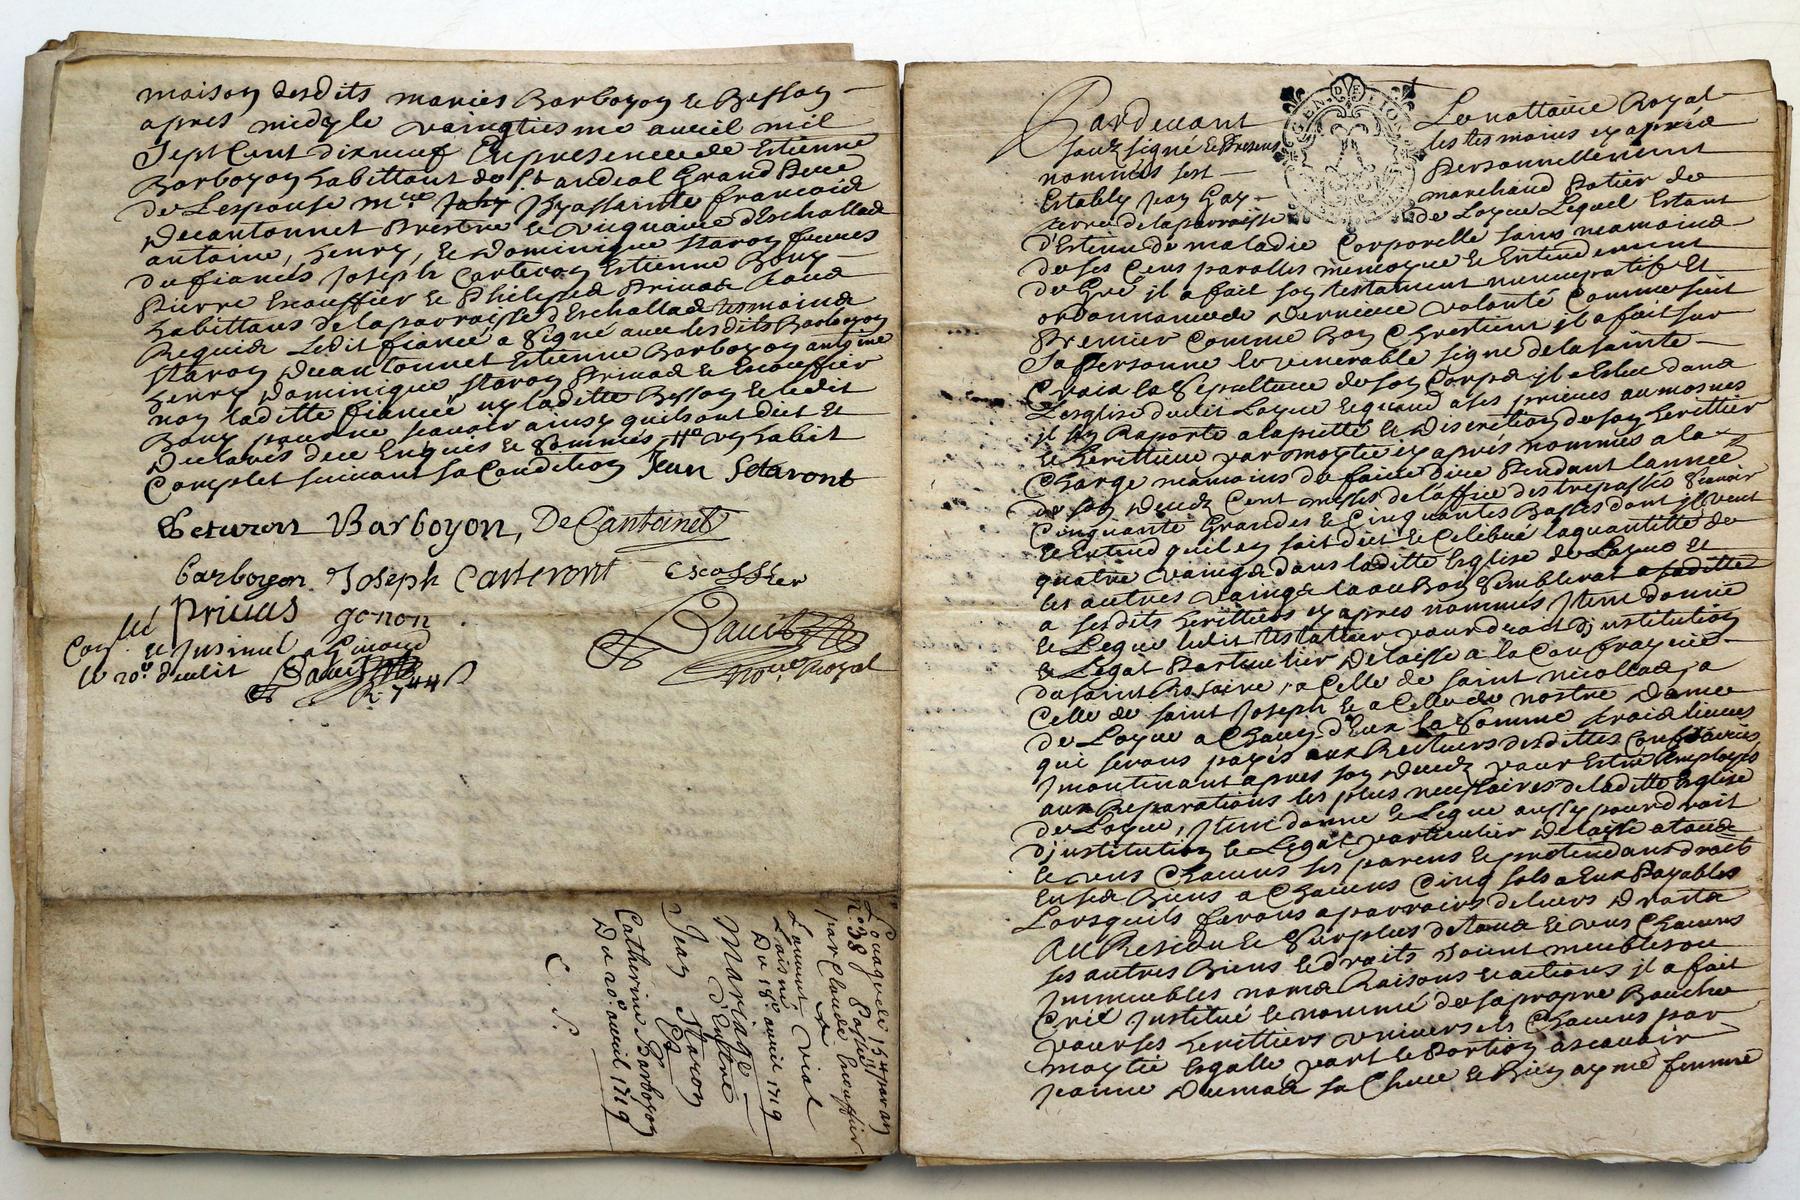 maison desdits mariés Barboyon & Besson
apres midy le vaingtiesme avril mil
sept cent dixneuf En presence de Estienne
Barboyon habittant de St andeol Grand Pere
de Lespouse Mre Jaky hyassainte francois
Decantonnet Prestre & vicquaire d'Eschallas
antoine, henry, & Dominique staron freres
du fiancés Joseph Carteron Estienne Bony
Pierre Escouffier & Philipes Privas tous
habittans de la parroisse d'Eschallas tesmoins
Requis Ledit fiancé a signé avec lesdits Barboyon
staron Decantonnet Estienne Barboyon antoine
henry Dominique staron Privas & Escouffier
non laditte fiancée ny laditte Besson & ledit
Bony pour ne scavoir ainsy quils ont dict &
Declarés de ce Enquis & sommés
Complet suivant sa Condition Jean Setaront
Setaron Barboyon, DeCantoinet
barboyon Joseph Carteront Escoffier
privas gonon
Con. & Insinué a Givord
le 20e dudit
R 7
no.re Royal
Louagndi 154
n.o 38
par Claude Escouffier
a
Laurent Vial
Laisné
Du 18e avril 1719
Mariage
D'Entre
Jean Staron
Et
Catherine Barboyon
Du 20e avril 1719
C. S.
GEN. DE LION
Pardevant Le nottaire Royal
souz signé & Presens les tesmoins cy apres
nommés fut Personnellement
Estably marchand Potier de
terre de la parroisse de Loyre Lequel Estant
d'Estenu de maladie Corporelle sains neamoins
de ses Cens parolles memoyre & Entendement
de Gré il a fait son testament nuncupatif Et
ordonnance de Derniere volonté Comme suit
Premier Comme Bon Chrestient il a fait sur
sa Personne le venerable signe de la sainte
Croix la sepulture de son Corps il Eslu dans
Lesglise dudit Loyre & quand a ses prieres aumosnes
il s'en Raporte a la pietté & discretion de son herittier
& herittiere par moytié cy apres nommés a la
Charge neamoins de faire dire Pendant lannée
de son deces Cent messes de l'office des trepassés scavoir
Cinquante Grandes & Cinquantes Basses dont il veut
& Entend quil en soit dict & Celebré la quantitté de
quatre vaingts dans laditte Esglise de Loyre &
les autres vaingt la ou Bon semblerat a saditte
a sesdits herittiers cy apres nommés Item donne
& Legue ledit testateur pour droit d'institution
& Legat Particulier Delaisse a la Confrayrie
du saint Rosaire, a Celle de saint nicollas, a
Celle de saint Joseph & a Celle de nostre Dame
de Loyre a Chacun d'Eux la somme trois livres
qui serons payés aux Recteurs desdittes Confrairies
Incontinant apres son deces pour Estre Employés
aux Reparations les plus necessaires de laditte Esglise
de Loyre, Item donne & Legue aussy pour droit
d'institution & Legat particulier Delaisse a tous
& uns Chacuns ses parens & pretendans droits
En ses Biens a Chacuns Cinq sols a Eux Payables
Lorsquils ferons aparroir de leurs Droits
Au Residu & surplus de tous & uns Chacuns
ses autres Biens & droits soient meubles ou
Immeubles noms Raisons & actions il a fait
Créé Institué & nommé de sa propre Bouche
pour ses herittiers univerels Chacuns par
moytié Esgalle part & Portion ascavoir
Jeanne Dumas sa Chere & Bien aymé femme